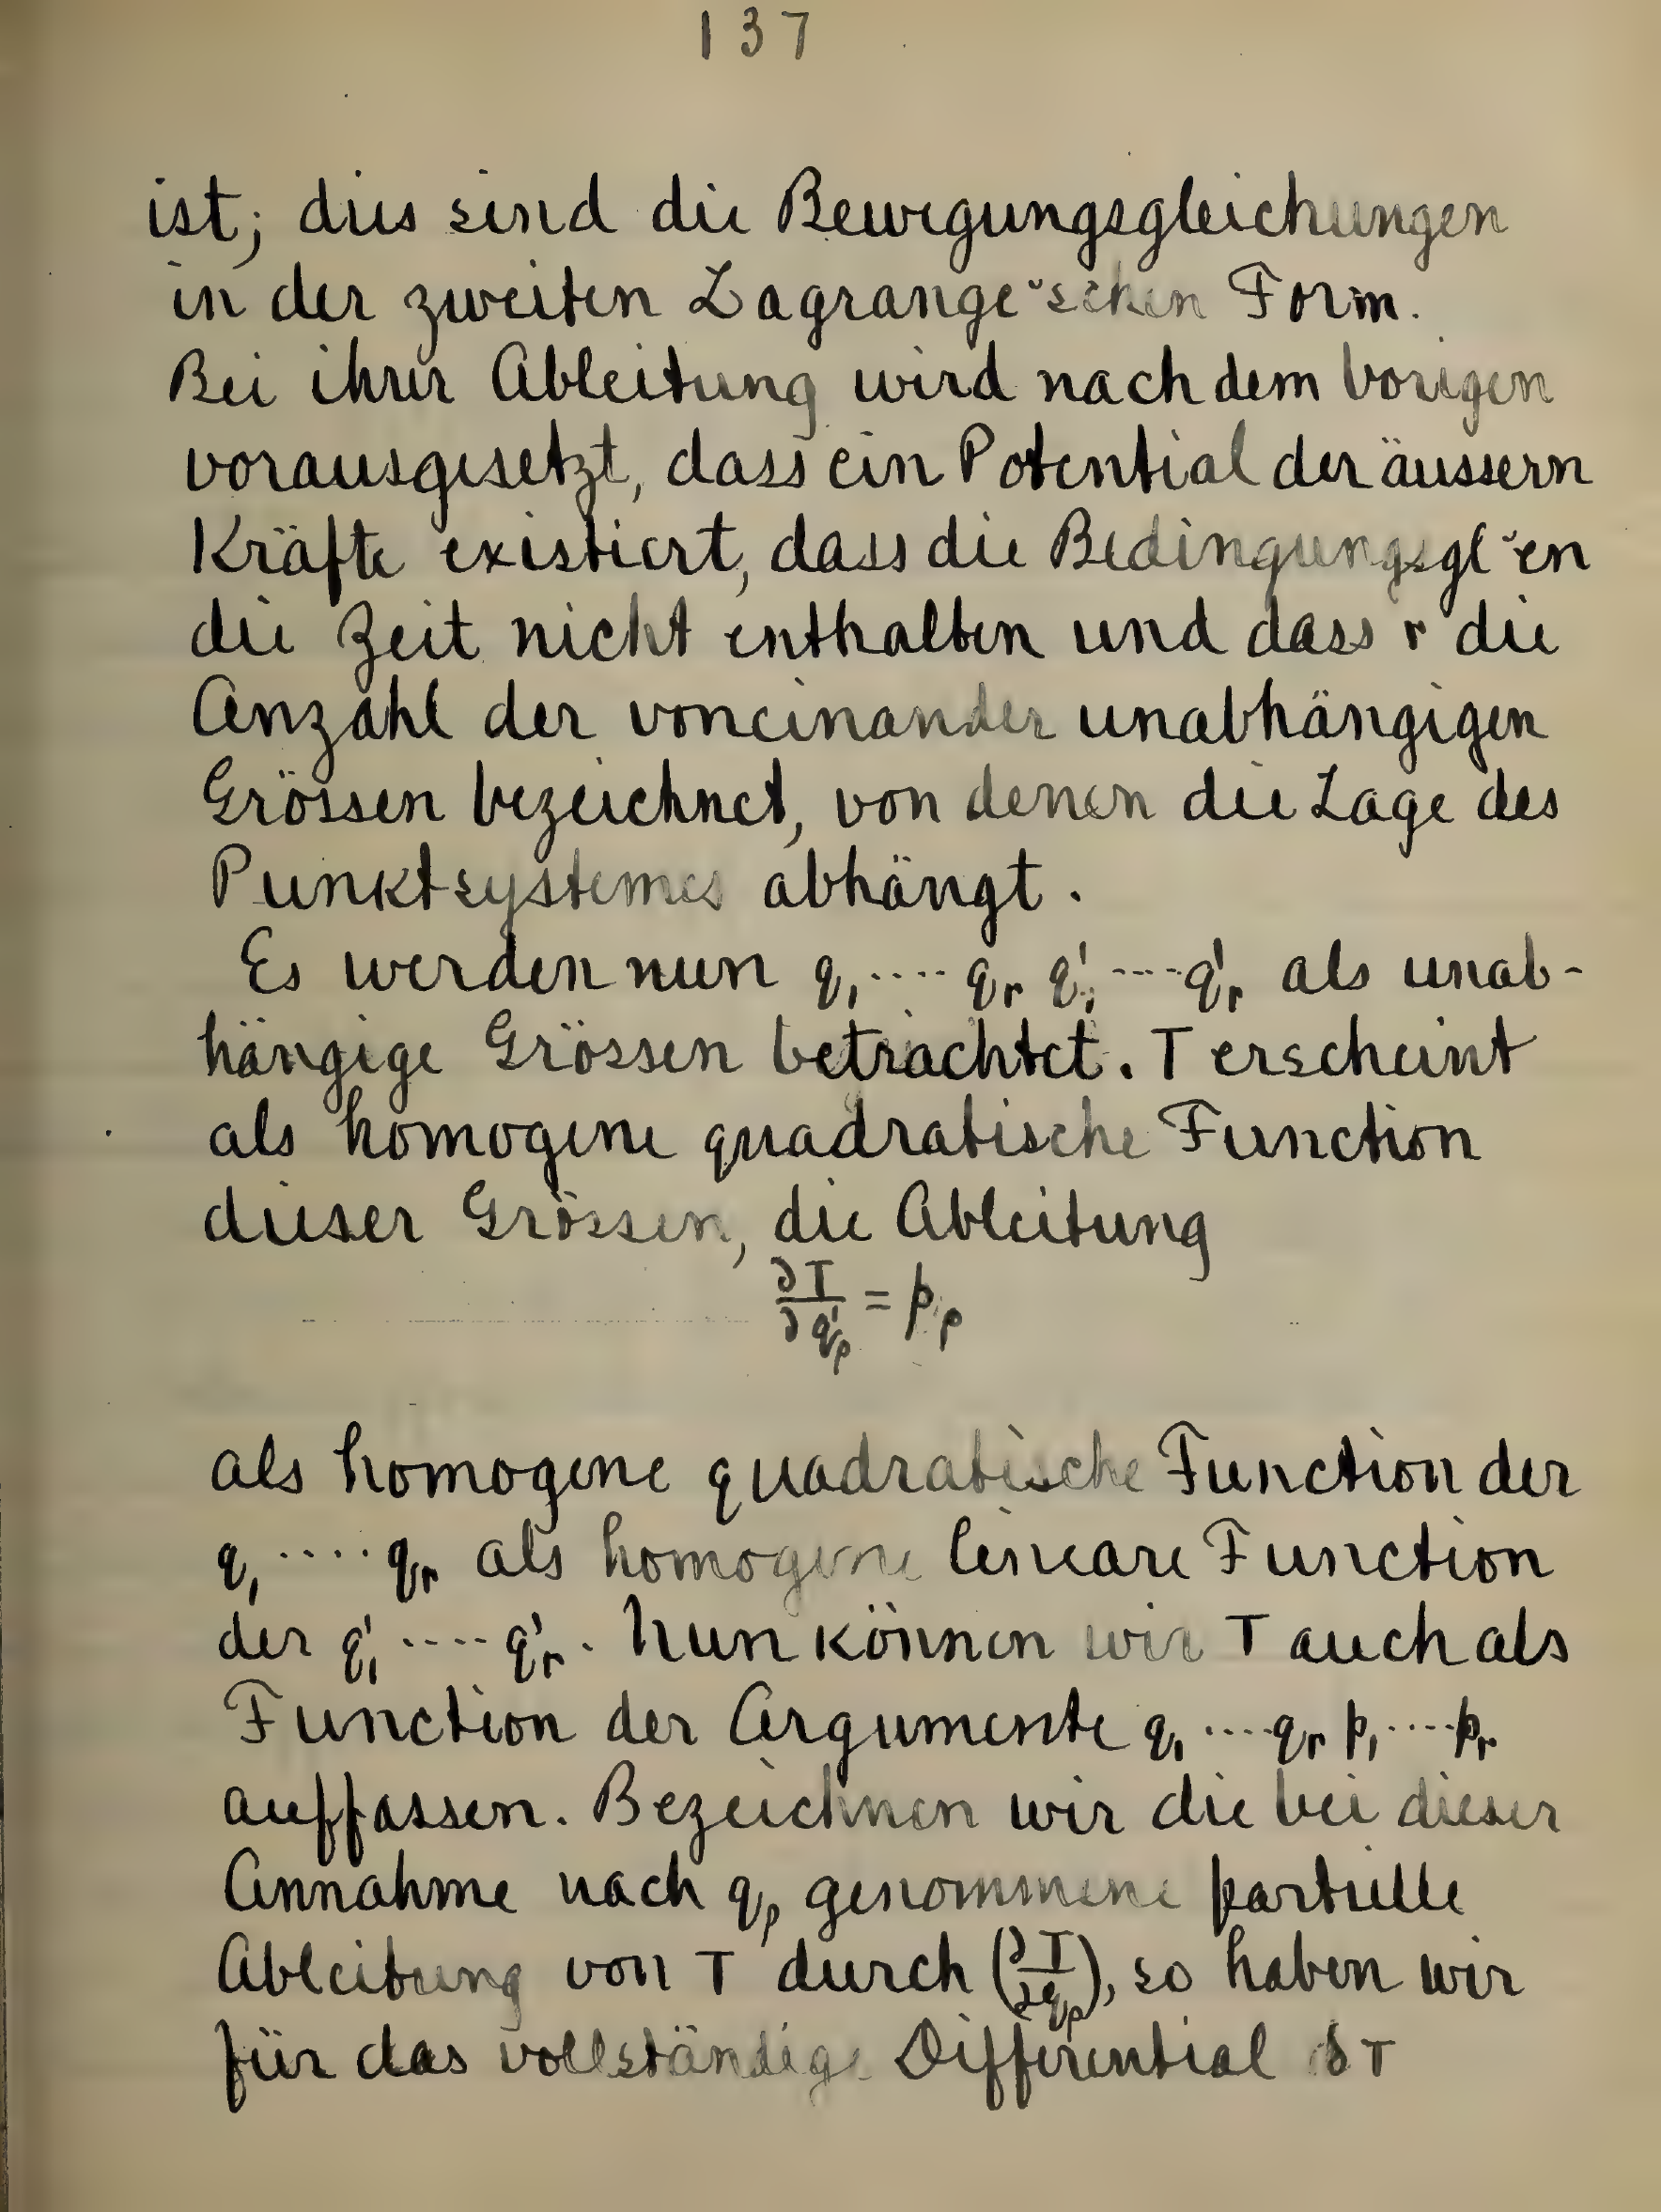 137
ist; dies sind die Bewegungsgleichungen
in der zweiten Lagrange'schen Form.
Bei ihrer Ableitung wird nach dem Vorigen
vorausgesetzt, dass ein Potential der äussern
Kräfte existiert, dass die Bedingungsgl˘en
die Zeit nicht enthalten und dass r die
Anzahl der voneinander unabhängigen
Grössen bezeichnet, von denen die Lage des
Punktsystemes abhängt.
Es werden nun q₁ .... qᵣ q'₁ .... q'ᵣ als unab-
hängige Grössen betrachtet. T erscheint
als homogene quadratische Function
dieser Grössen, die Ableitung
∂T/∂q'ᵨ = pᵨ
als homogene quadratische Function der
q₁ .... qᵣ als homogene lineare Function
der q'₁ .... q'ᵣ. Nun können wir T auch als
Function der Argumente q₁ .... qᵣ p₁ .... pᵣ
auffassen. Bezeichnen wir die bei dieser
Annahme nach qᵨ genommene partielle
Ableitung von T durch (∂T/∂qᵨ), so haben wir
für das vollständige Differential δT